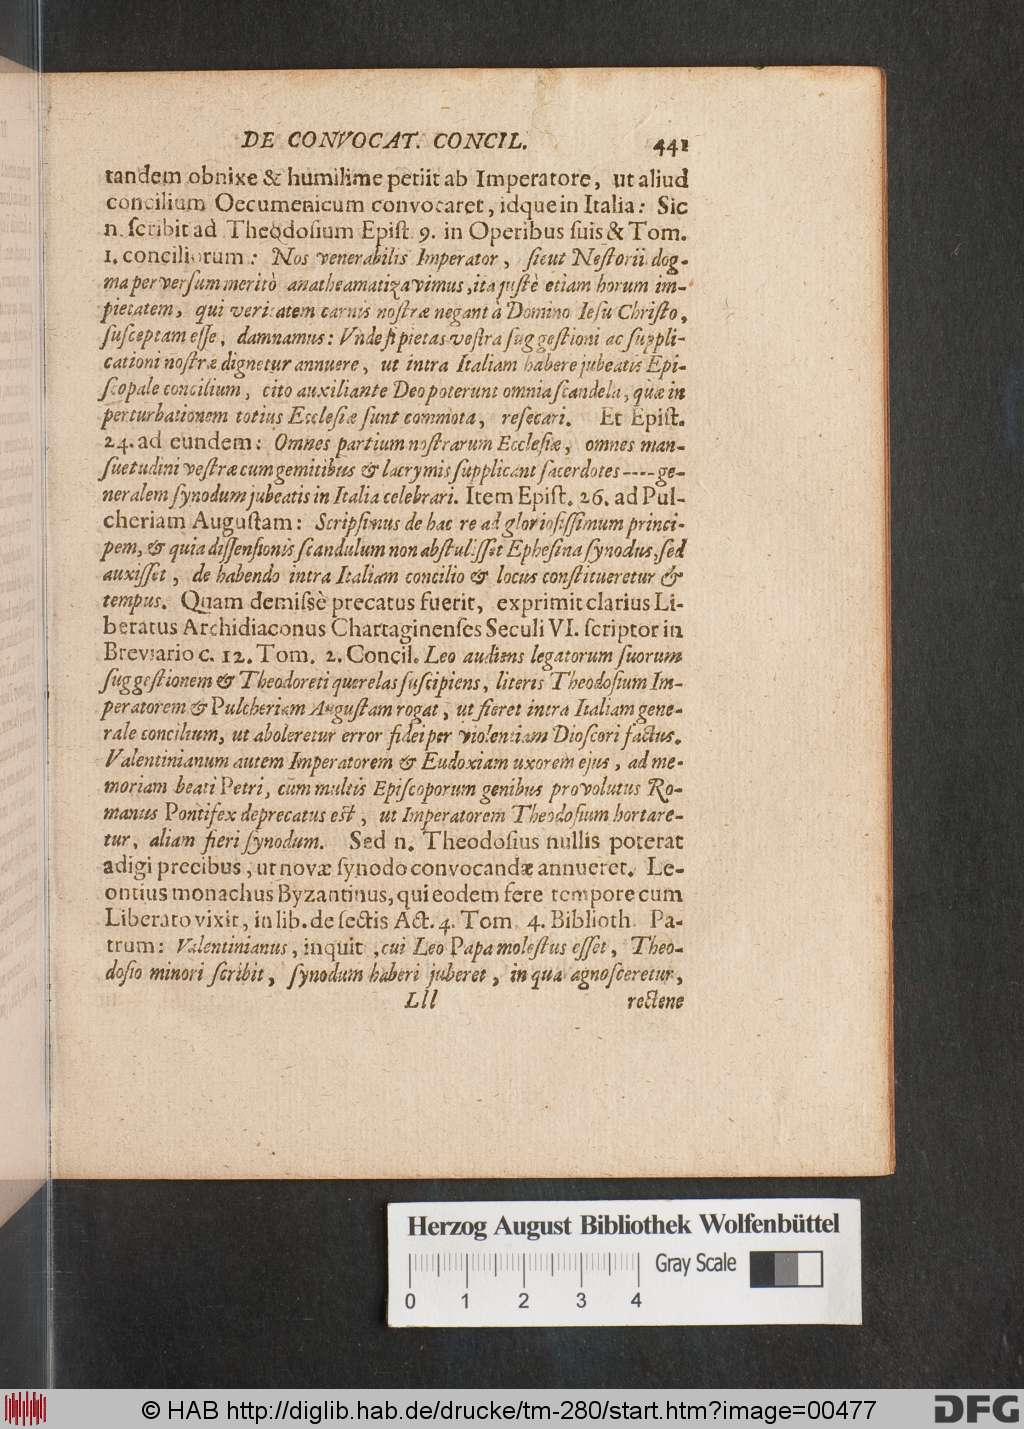 DE CONVOCAT. CONCIL. 441
tandem obnixe & humilime petiit ab Imperatore, ut aliud
concilium Oecumenicum convocaret, idque in Italia: Sic
n. scribit ad Theodosium Epist. 9. in Operibus suis & Tom.
1. conciliorum: Nos venerabilis Imperator, sicut Nestorii dog-
ma perversum meritò anatheamatizavimus, ita justè etiam horum im-
pietatem, qui veritatem carnis nostræ negant à Domino Iesu Christo,
susceptam esse, damnamus: Vnde si pietas vestra suggestioni ac suppli-
cationi nostræ dignetur annuere, ut intra Italiam habere jubeatis Epi-
scopale concilium, cito auxiliante Deo poterunt omnia scandela, quæ in
perturbationem totius Ecclesiæ sunt commota, resecari. Et Epist.
24. ad eundem: Omnes partium nostrarum Ecclesiæ, omnes man-
suetudini vestræ cum gemitibus & lacrymis supplicant sacerdotes ---- ge-
neralem synodum jubeatis in Italia celebrari. Item Epist. 26. ad Pul-
cheriam Augustam: Scripsimus de hac re ad gloriosissimum princi-
pem, & quia dissensionis scandulum non abstulisset Ephesina synodus, sed
auxisset, de habendo intra Italiam concilio & locus constitueretur &
tempus. Quam demissè precatus fuerit, exprimit clarius Li-
beratus Archidiaconus Chartaginenses Seculi VI. scriptor in
Breviario c. 12. Tom. 2. Concil. Leo audiens legatorum suorum
suggestionem & Theodoreti querelas suscipiens, literis Theodosium Im-
peratorem & Pulcheriam Augustam rogat, ut fieret intra Italiam gene-
rale concilium, ut aboleretur error fidei per violentiam Dioscori factus.
Valentinianum autem Imperatorem & Eudoxiam uxorem ejus, ad me-
moriam beati Petri, cum multis Episcoporum genibus provolutus Ro-
manus Pontifex deprecatus est, ut Imperatorem Theodosium hortare-
tur, aliam fieri synodum. Sed n. Theodosius nullis poterat
adigi precibus, ut novæ synodo convocandæ annueret. Le-
ontius monachus Byzantinus, qui eodem fere tempore cum
Liberato vixit, in lib. de sectis Act. 4. Tom. 4. Biblioth. Pa-
trum: Valentinianus, inquit, cui Leo Papa molestus esset, Theo-
dosio minori scribit, synodum haberi juberet, in qua agnosceretur,
Lll rectene
Herzog August Bibliothek Wolfenbüttel
Gray Scale
0 1 2 3 4
© HAB http://diglib.hab.de/drucke/tm-280/start.htm?image=00477 DFG